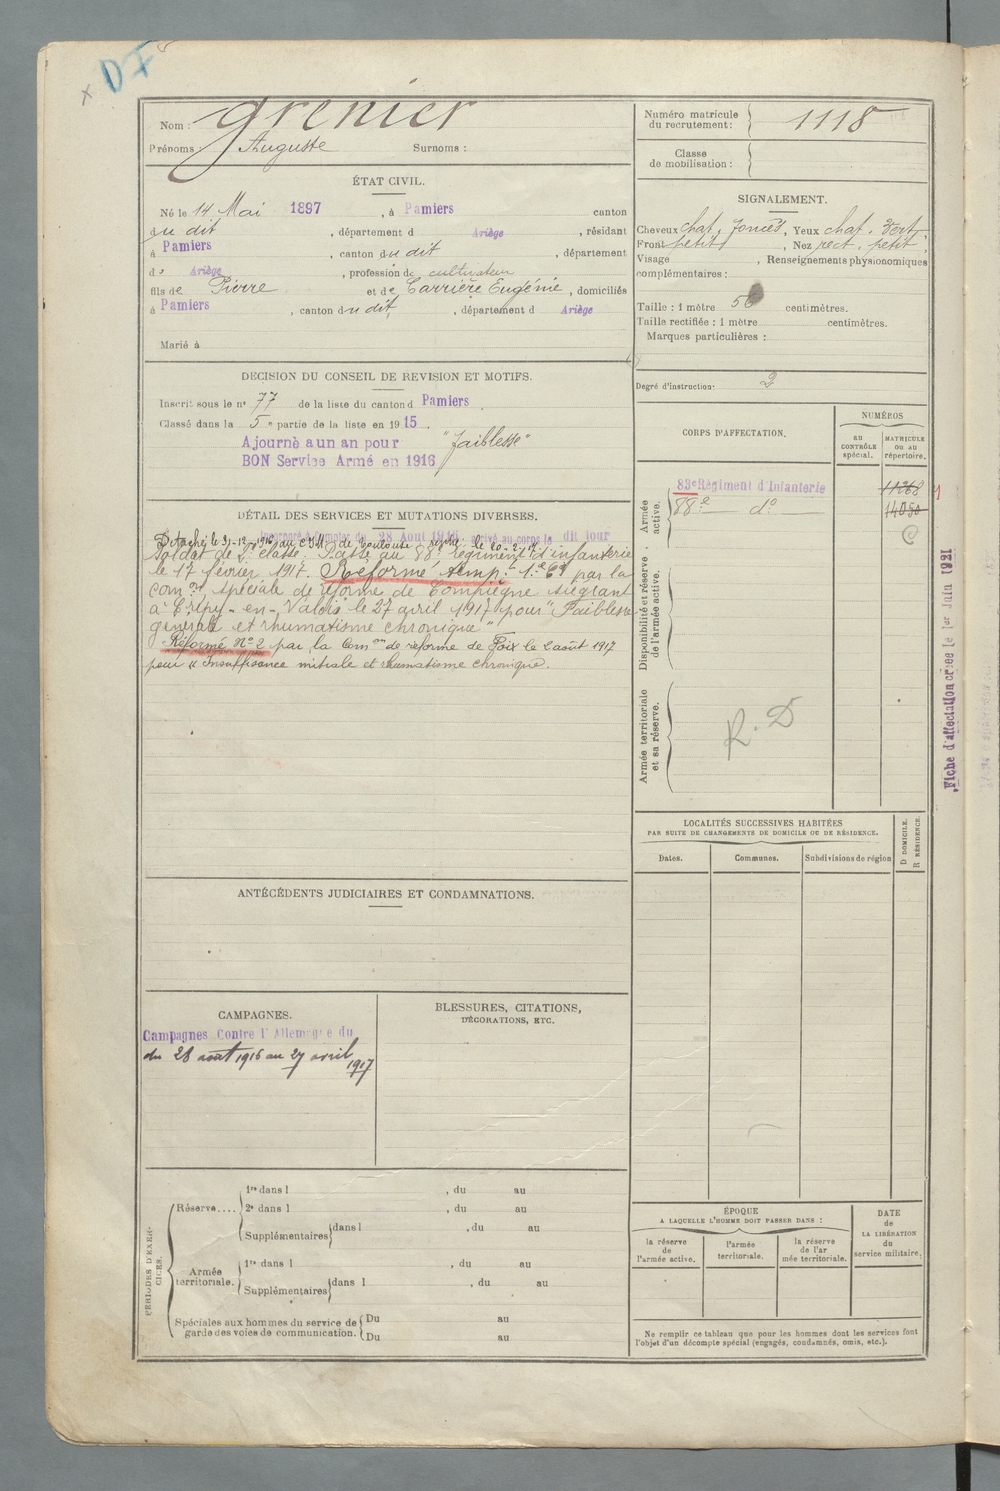 DF
x
Nom : Grenier
Prénoms Auguste Surnoms :
Numéro matricule du recrutement : 1118
Classe de mobilisation :
ÉTAT CIVIL.
Né le 14 Mai 1897, à Pamiers canton
du dit, département d Ariège, résidant
à Pamiers, canton du dit, département
d Ariège, profession de cultivateur
fils de Pierre et de Carrière Eugénie, domiciliés
à Pamiers, canton du dit, département d Ariège
Marié à
SIGNALEMENT.
Cheveux chat. foncés, Yeux chat. vert,
Front petit, Nez rect. petit,
Visage , Renseignements physionomiques
complémentaires :
Taille : 1 mètre 56 centimètres.
Taille rectifiée : 1 mètre centimètres.
Marques particulières :
Degré d'instruction : 2
DECISION DU CONSEIL DE REVISION ET MOTIFS.
Inscrit sous le n° 77 de la liste du canton d Pamiers
Classé dans la 5e partie de la liste en 1915.
Ajourné a un an pour "faiblesse"
BON Service Armé en 1916
CORPS D'AFFECTATION.
NUMÉROS
au contrôle spécial.
MATRICULE ou au répertoire.
Armée active.
83e Régiment d'Infanterie 11268
88e do 14050
Disponibilité et réserve de l'armée active.
Armée territoriale et sa réserve.
R. D
Fiche d'affectation créée le 1er Juin 1921
DÉTAIL DES SERVICES ET MUTATIONS DIVERSES.
28 Août 1916, arrivé au corps le dit jour
Détaché le 31-12-1916 au de Toulouse le 20-2-17
Soldat de 2e classe. Passé au 88e Régiment d'infanterie
le 17 février 1917. Réformé temp. 1e Cie par la
com.on spéciale de réforme de Compiègne siégeant
à Crépy-en-Valois le 27 avril 1917 pour "Faiblesse
générale et rhumatisme chronique"
Réformé No 2 par la Com.on de réforme de Foix le 2 août 1917
pour "insuffisance mitrale et rhumatisme chronique.
LOCALITÉS SUCCESSIVES HABITÉES
PAR SUITE DE CHANGEMENTS DE DOMICILE OU DE RÉSIDENCE.
Dates. Communes. Subdivisions de région
D DOMICILE. R RÉSIDENCE.
ANTÉCÉDENTS JUDICIAIRES ET CONDAMNATIONS.
CAMPAGNES.
Campagnes Contre l'Allemagne du
du 28 août 1916 au 27 avril 1917
BLESSURES, CITATIONS,
DÉCORATIONS, ETC.
PÉRIODES D'EXERCICES.
Réserve....
1re dans l , du au
2e dans l , du au
Supplémentaires dans l , du au
Armée territoriale.
1re dans l , du au
Supplémentaires dans l , du au
Spéciales aux hommes du service de garde des voies de communication.
Du au
Du au
ÉPOQUE
A LAQUELLE L'HOMME DOIT PASSER DANS :
la réserve de l'armée active.
l'armée territoriale.
la réserve de l'ar mée territoriale.
DATE de LA LIBÉRATION du service militaire.
Ne remplir ce tableau que pour les hommes dont les services font
l'objet d'un décompte spécial (engagés, condamnés, omis, etc.).